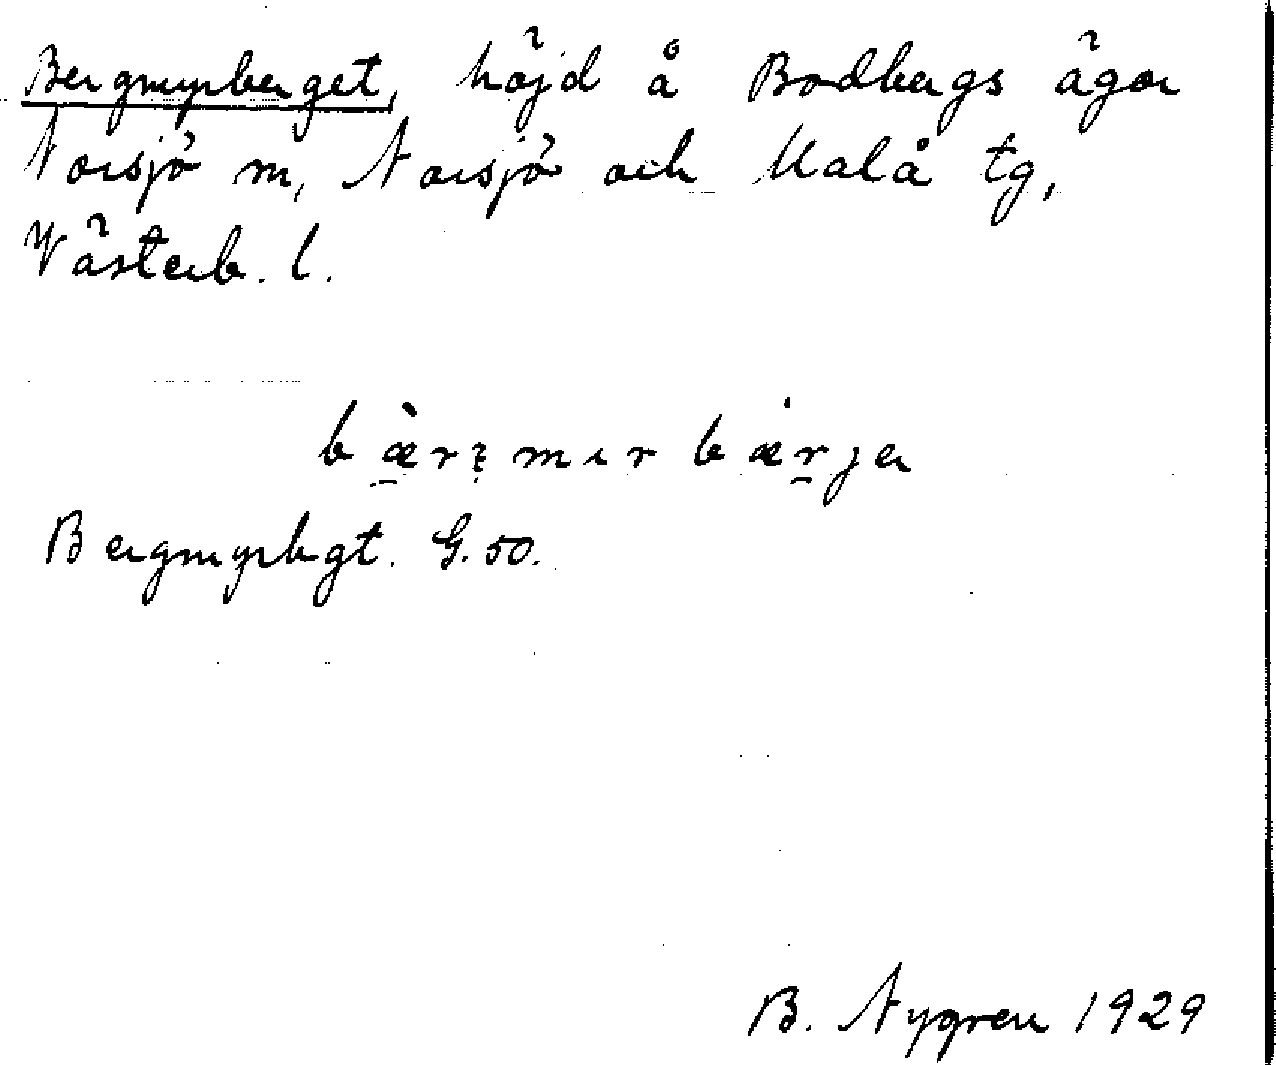 Bergmyrberget, höjd å Bodbergs ägor
Norsjö m, Norsjö och Malå tg,
Västerb. l.
Bergmyrbgt. G. 50.
B. Nygren 1929